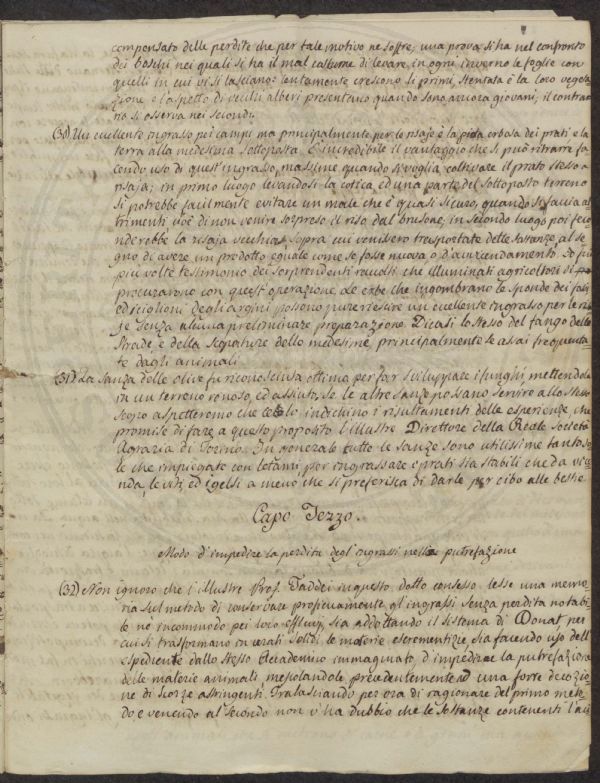 compensato delle perdite che per tale motivo ne soffre, una prova si ha nel confronto
dei boschi nei quali si ha il mal costume di levare, in ogni inverno le foglie con
quelli in cui vi si lasciano: lentamente crescono si primi, stentata è la loro vegeta
zione e l'aspetto di vecchi alberi presentano quando sono ancora giovani; il contra
rio si osserva nei secondi.
(30) Un eccellente ingrasso pei campi ma principalmente per le risaje è la piota erbosa dei prati e la
terra alla medesima sottoposta. È incredibile il vantaggio che si può ritrarre fa
cendo uso di quest'ingrasso, massime quando si voglia coltivare il prato stesso a
risaja; in primo luogo levandosi la cotica, ed una parte del sottoposto terreno
si potrebbe facilmente evitare un male che è quasi sicuro, quando si faccia al
trimenti cioè di non venire sorpreso il riso dal brusone; in secondo luogo poi feco
nderebbe la risaja vecchia sopra cui venissero trasportate dette sostanze, al se
gno di avere un prodotto eguale come se fosse nuova o d'avvicendamento. Io fui
più volte testimonio dei sorprendenti raccolti che illuminati agricoltori si
procurarono con quest'operazione. Le erbe che ingombrano le sponde dei fossi
ed i ciglioni degli argini possono pure riescire un eccellente ingrasso per le risa
je senza alcuna preliminare preparazione. Dicasi lo stesso del fango delle
strade e della spazzature delle medesime, principalmente se assai frequenta
te dagli animali.
(31) La sanza delle olive fu riconosciuta ottima per far sviluppare i funghi mettendola
in un terreno renoso, ed asciutto, se le altre sanze possano servire allo stesso
scopo aspetteremo che ce lo indichino i risultamenti delle esperienze che
promise di fare a questo proposito l'illustre Direttore della Reale Società
Agraria di Torino. In generale tutte le sanze sono utilissime tanto so
le che impiegate con letami, per ingrassare i prati sia stabili che da vice
nda, le viti, ed i gelsi a meno che si preferisca di darle per cibo alle bestie.
Capo Terzo.
Modo d'impedire la perdita degli ingrassi nella putrefazione
(32) Non ignoro che l'illustre Prof. Taddei in questo dotto consesso lesse una memo
ria sul metodo di conservare proficuamente gl'ingrassi senza perdita notabi
le nè incommodo pei loro effluvj, sia adottando il sistema di Donat per
cui si trasformano in cerati solidi le materie escrementizie, sia facendo uso dell'
espediente dallo stesso Accademico immaginato, d'impedire la putrefazione
delle materie animali, mescolandole precedentemente ad una forte decozio
ne di scorze astringenti. Tralasciando per ora di ragionare del primo meto
do e venendo al secondo non v'ha dubbio che le sostanze contenenti l'aci